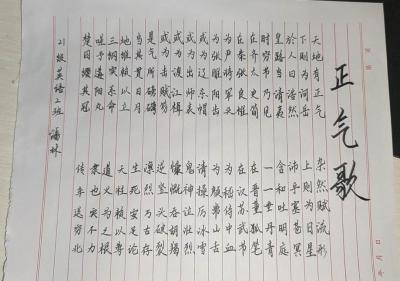 正气歌
天地有正气 杂然赋流形
下则为河岳 上则为日星
於人曰浩然 沛乎塞苍冥
皇路当清夷 含和吐明庭
时穷节乃见 一一垂丹青
在齐太史简 在晋董狐笔
在秦张良椎 在汉苏武节
为严将军头 为嵇侍中血
为张睢阳齿 为颜常山舌
或为辽东帽 清操厉冰雪
或为出师表 鬼神泣壮烈
或为渡江楫 慷慨吞胡羯
或为击贼笏 逆竖头破裂
是气所磅礴 凛烈万古存
当其贯日月 生死安足论
地维赖以立 天柱赖以尊
三纲实系命 道义为之根
嗟予遘阳九 隶也实不力
楚囚缨其冠 传车送穷北
21级英语2班 潘林